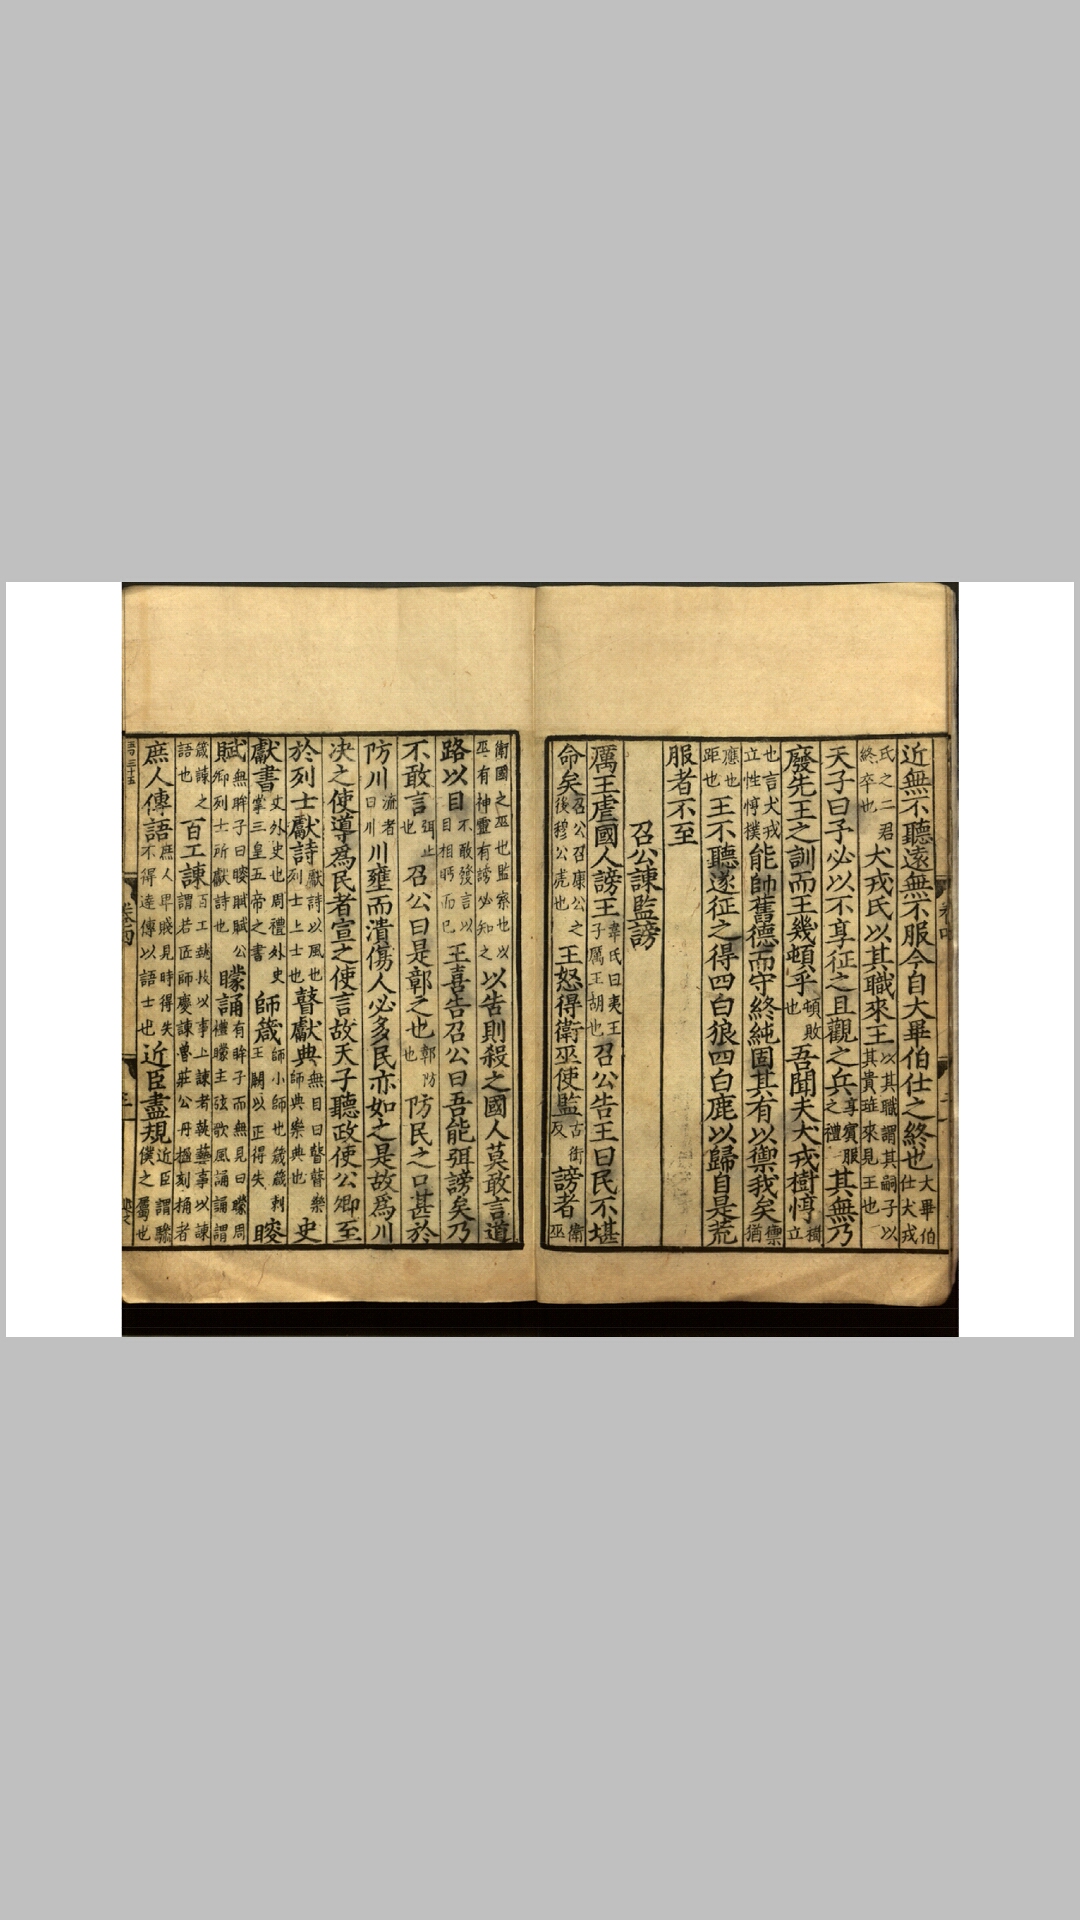 近無不聽遠無不服今自大畢伯仕之終也大畢伯仕犬戎
氏之二君終卒也犬戎氏以其職來王以其職謂其嗣子以其貴班來見王也
天子曰予必以不享征之且觀之兵享賓服之禮其無乃
廢先王之訓而王幾頓乎頓敗也吾聞夫犬戎樹惇樹立
也言犬戎立性惇樸能帥舊德而守終純固其有以禦我矣禦猶
應也距也王不聽遂征之得四白狼四白鹿以歸自是荒
服者不至
召公諫監謗
厲王虐國人謗王韋氏曰夷王子厲王胡也召公告王曰民不堪
命矣召公召康公之後穆公虎也王怒得衛巫使監古銜反謗者衛巫
衛國之巫也監察也以巫有神靈有謗必知之以告則殺之國人莫敢言道
路以目不敢發言以目相眄而已王喜告召公曰吾能弭謗矣乃
不敢言弭止也召公曰是鄣之也鄣防也防民之口甚於
防川流者曰川川壅而潰傷人必多民亦如之是故為川
决之使導為民者宣之使言故天子聽政使公卿至
於列士獻詩獻詩以風也列士上士也瞽獻典無目曰瞽瞽樂師典樂典也史
獻書史外史也周禮外史掌三皇五帝之書師箴師小師也箴箴刺王闕以正得失瞍
賦無眸子曰瞍賦賦公卿列士所獻詩也矇誦有眸子而無見曰矇周禮矇主弦歌風誦誦謂
箴諫之語也百工諫百工執技以事上諫者執藝事以諫謂若匠師慶諫魯莊公丹楹刻桷者
庶人傳語庶人卑賤見時得失不得達傳以語士也近臣盡規近臣謂驂僕之屬也
卷四